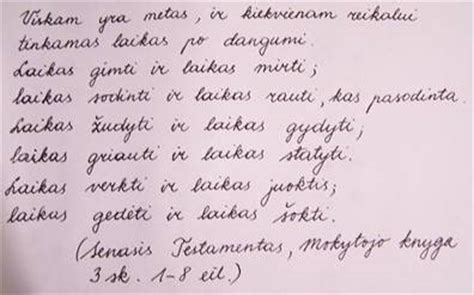 Viskam yra metas, ir kiekvienam reikalui
tinkamas laikas po dangumi.
Laikas gimti ir laikas mirti;
laikas sodinti ir laikas rauti, kas pasodinta.
Laikas žudyti ir laikas gydyti;
laikas griauti ir laikas statyti.
Laikas verkti ir laikas juoktis;
laikas gedėti ir laikas šokti.
(Senasis Testamentas, Mokytojo knyga
3 sk. 1-8 eil.)